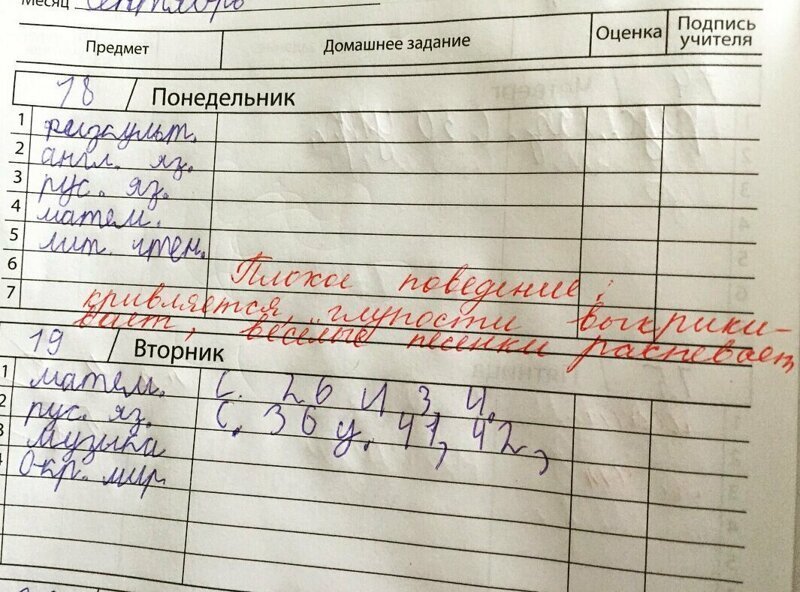 Месяц сентябрь
Предмет Домашнее задание Оценка Подпись учителя
18 Понедельник
1 физкульт.
2 англ. яз.
3 рус. яз.
4 матем.
5 лит. чтен.
6 Плохое поведение:
7 кривляется, глупости выкрики-
вает, весёлые песенки распевает
19 Вторник
1 матем. С. 26 И 3, 4.
2 рус. яз. С. 36 у. 41, 42,
3 музыка
4 Окр. мир